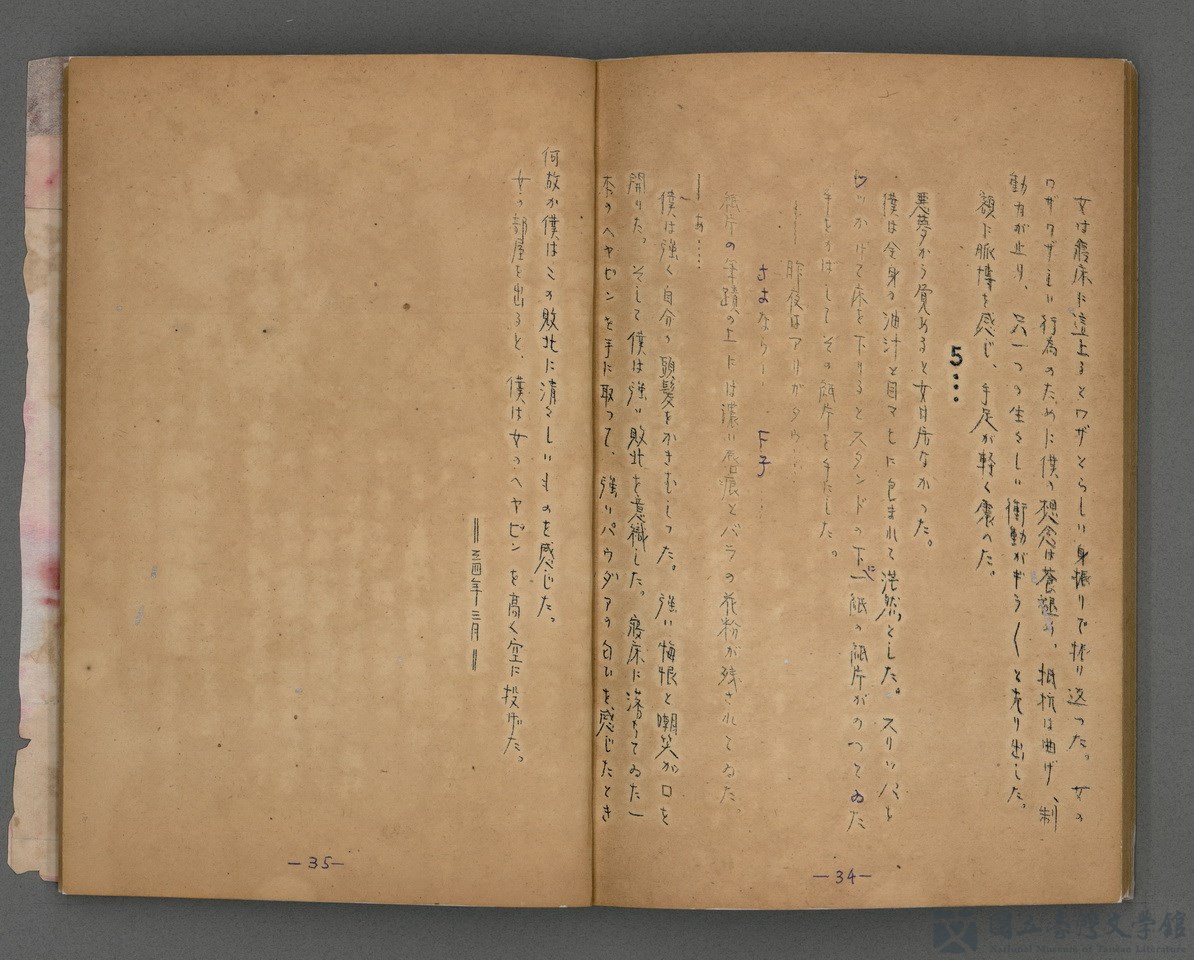 女は寝床に這上るとワザとらしい身振りで振り返つた。女の
ワザワザ主い行為のために僕の想念は蒼褪め、抵抗は曲げ、制
動力が止り、只一つの生々しい衝動がギラ〳〵と光り出した。
額に脈搏を感じ、手足が軽く震へた。
5…
悪夢から覚めると女は居なかつた。
僕は全身の油汁と目マヒに包まれて茫然とした。スリッパを
ツッかけて床を下りるとスタンドの下に一紙の紙片がのつてゐた
手をのばしてその紙片を手にした。
― 昨夜はアリガタウ…
さよなら―. F子
紙片の筆蹟の上には濃い唇痕とバラの花粉が残されてゐた。
― あ……
僕は強く自分の頭髪をかきむしつた。強い悔恨と嘲笑が口を
開けた。そして僕は強い敗北を意識した。寝床に落ちてゐた一
本のヘヤピンを手に取つて、強いパウダアの匂ひを感じたとき
何故か僕はこの敗北に清々しいものを感じた。
女の部屋を出ると、僕は女のヘヤピンを高く空に投げた。
＝三四年・三月＝
―34―
―35―
國立臺灣文學館
National Museum of Taiwan Literature